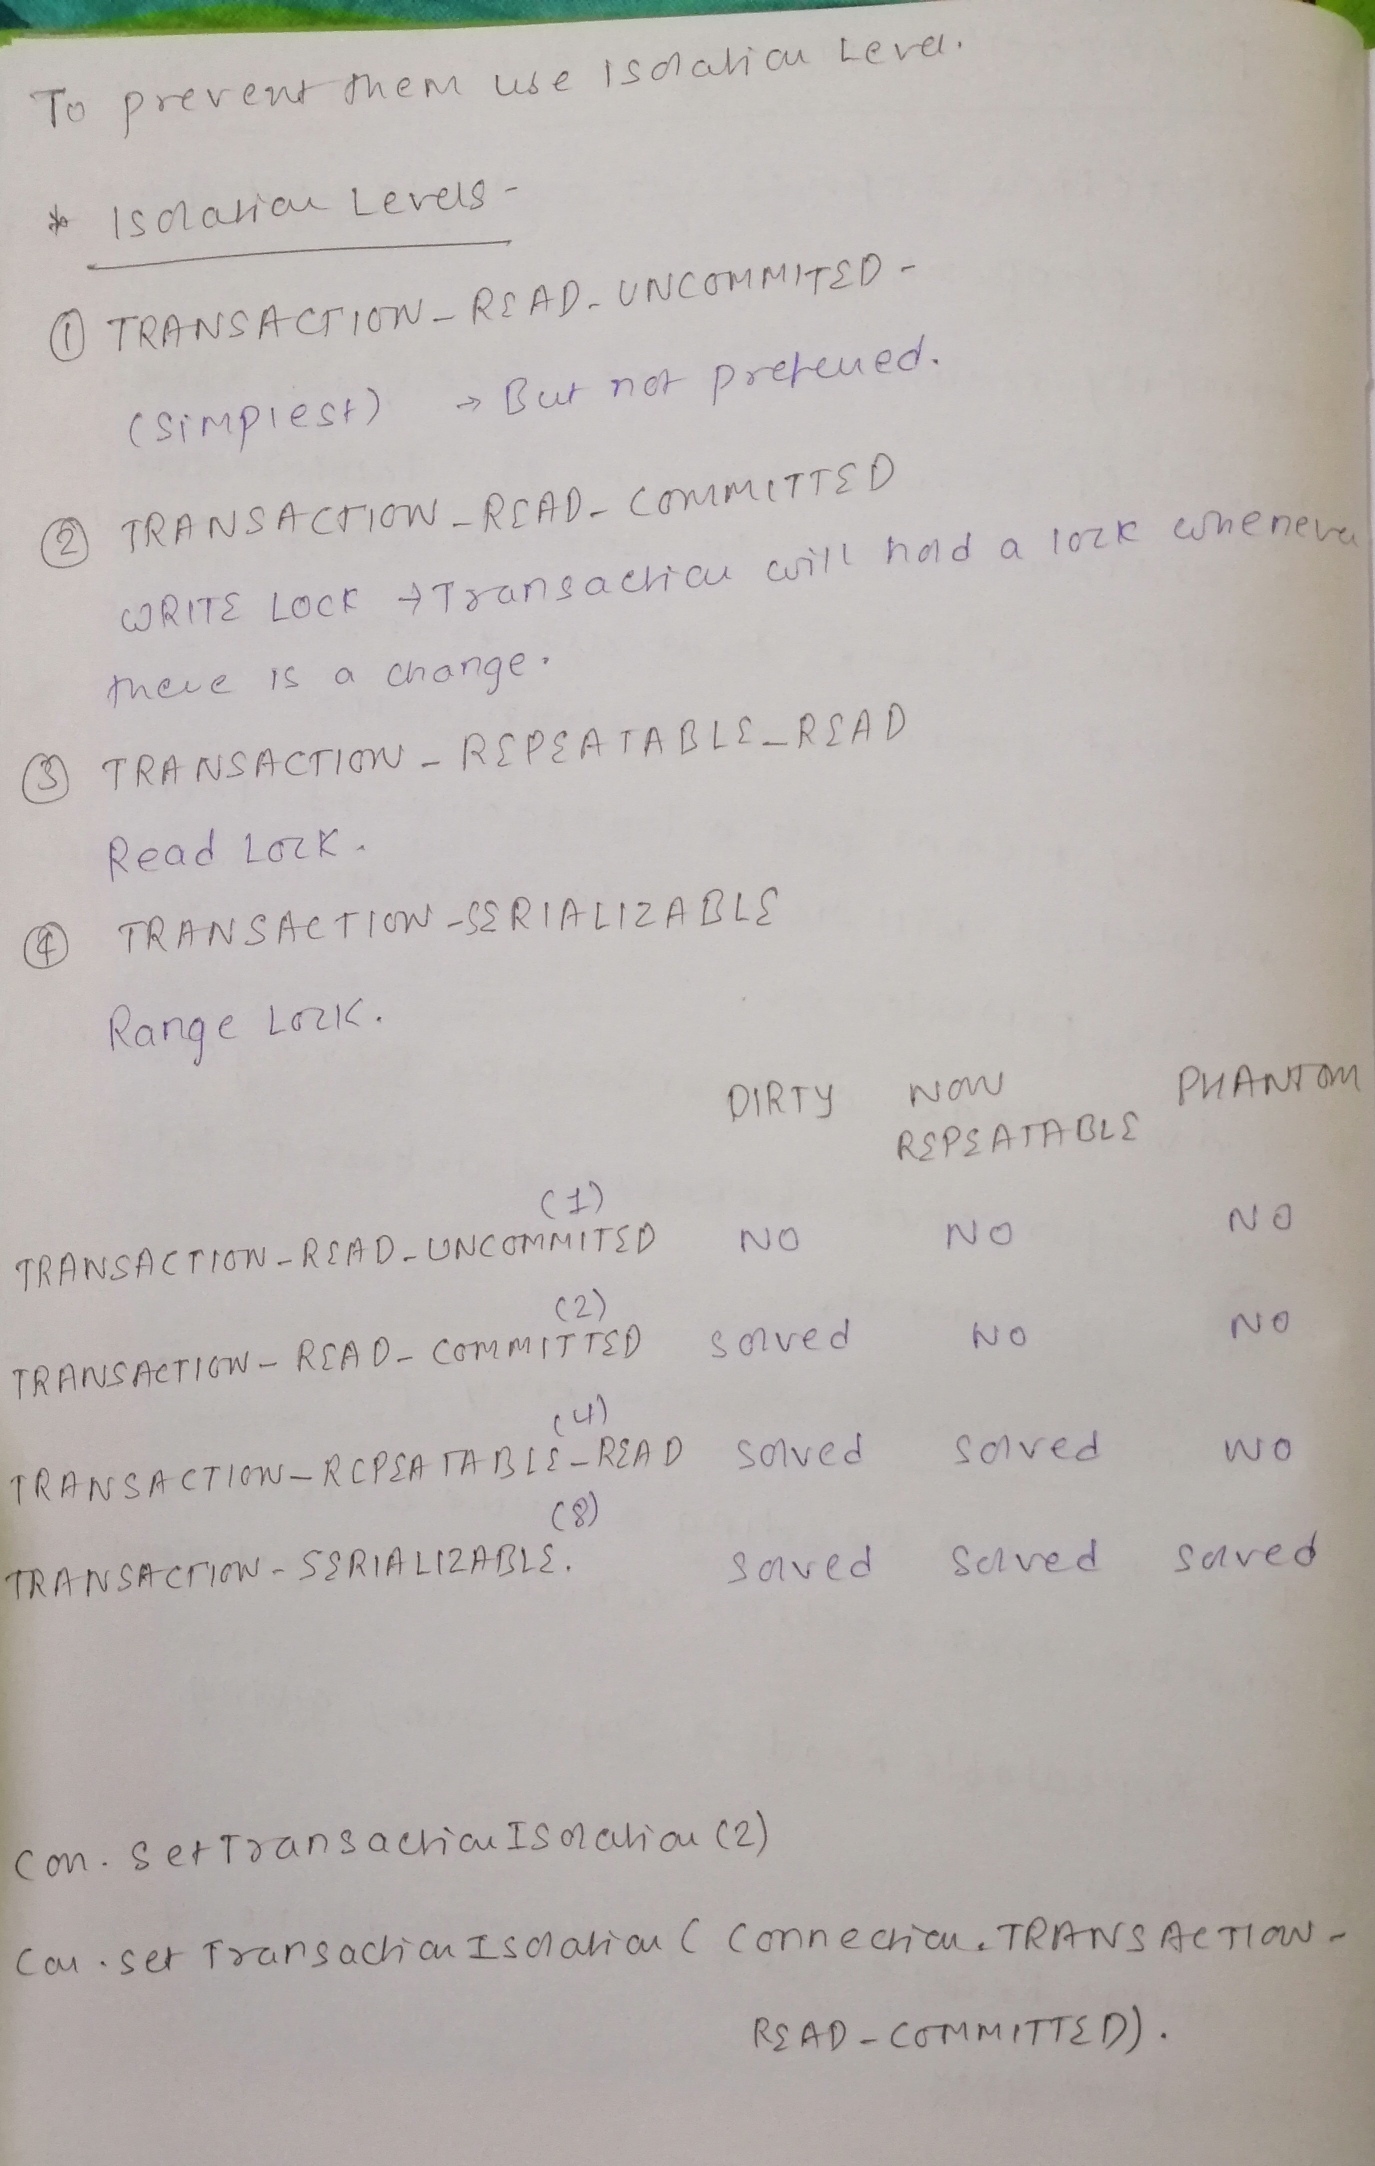 To prevent them use Isolation Level.
* Isolation Levels -
① TRANSACTION_READ_UNCOMMITED -
(simplest) → But not preferred.
② TRANSACTION_READ_COMMITTED
WRITE LOCK → Transaction will hold a lock whenever
there is a change.
③ TRANSACTION_REPEATABLE_READ
Read Lock.
④ TRANSACTION_SERIALIZABLE
Range Lock.
DIRTY NON PHANTOM
REPEATABLE
(1)
TRANSACTION_READ_UNCOMMITED NO NO NO
(2)
TRANSACTION_READ_COMMITTED solved NO NO
(4)
TRANSACTION_REPEATABLE_READ solved solved NO
(8)
TRANSACTION_SERIALIZABLE. solved solved solved
Con.setTransactionIsolation(2)
Con.set TransactionIsolation(Connection.TRANSACTION_
READ_COMMITTED).